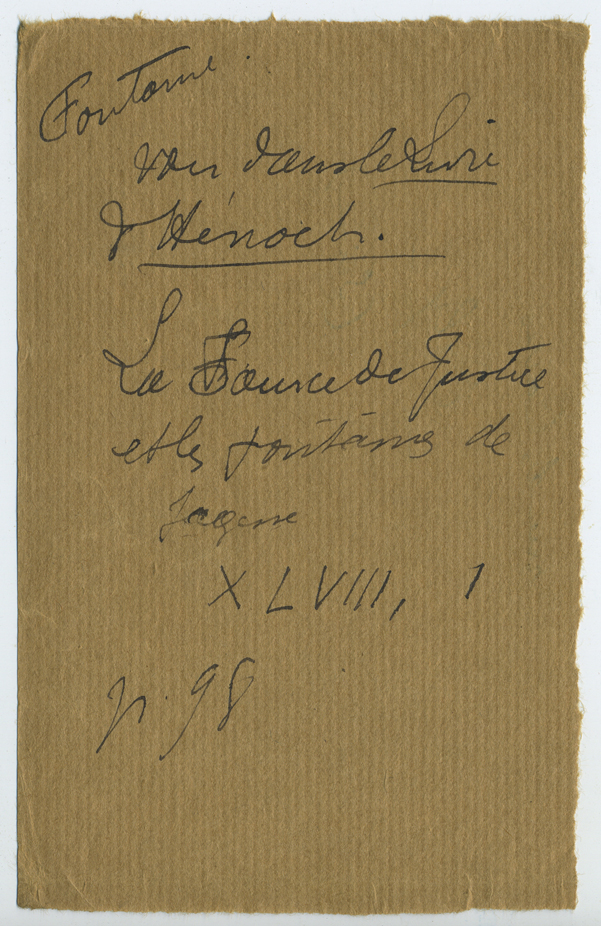 Fontaine.
voir dans le Livre
d'Hénoch.
La Source de Justice
et les fontaines de
Sagesse
XLVIII, 1
p. 98